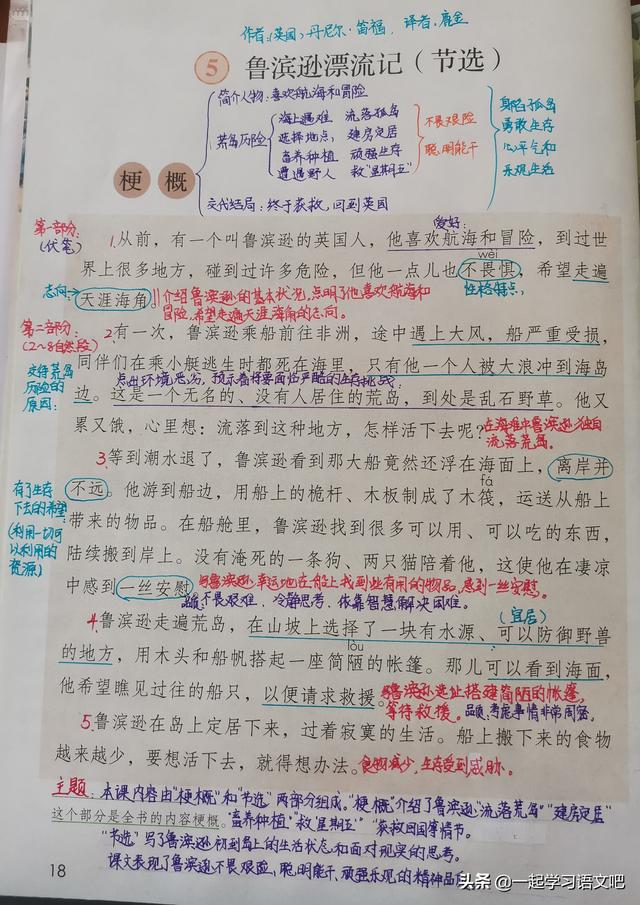 作者:(英国)丹尼尔·笛福, 译者:鹿金
5 鲁滨逊漂流记(节选)
梗概
简介人物:喜欢航海和冒险
荒岛历险
海上遇难 流落孤岛
选择地点, 建房定居
畜养种植 顽强生存
遭遇野人 救"星期五"
交代结局:终于获救,回到英国
不畏艰险
聪明能干
身陷孤岛
勇敢生存
心平气和
乐观生活
第一部分:
(伏笔)
爱好:
1.从前,有一个叫鲁滨逊的英国人,他喜欢航海和冒险,到过世
wèi
界上很多地方,碰到过许多危险,但他一点儿也不畏惧,希望走遍
志向:
性格特点,
天涯海角。
介绍鲁滨逊的基本状况,点明了他喜欢航海和
冒险,希望走遍天涯海角的志向。
第二部分:
(2~8自然段)
2.有一次,鲁滨逊乘船前往非洲,途中遇上大风,船严重受损,
同伴们在乘小艇逃生时都死在海里,只有他一个人被大浪冲到海岛
交待荒岛
历险的
原因:
点出环境恶劣,预示着将要面临严酷的生存挑战:
边。这是一个无名的、没有人居住的荒岛,到处是乱石野草。他又
累又饿,心里想:流落到这种地方,怎样活下去呢?
在海难中鲁滨逊独自
流落荒岛。
3.等到潮水退了,鲁滨逊看到那大船竟然还浮在海面上,离岸并
fá
不远。他游到船边,用船上的桅杆、木板制成了木筏,运送从船上
有了生存
下去的希望
(利用一切可
以利用的
资源)
带来的物品。在船舱里,鲁滨逊找到很多可以用、可以吃的东西,
陆续搬到岸上。没有淹死的一条狗、两只猫陪着他,这使他在凄凉
中感到一丝安慰
鲁滨逊幸运地在船上找到些有用的物品,感到一丝安慰。
品质:不畏艰难、冷静思考、依靠智慧解决困难。
(宜居)
4.鲁滨逊走遍荒岛,在山坡上选择了一块有水源、可以防御野兽
lòu
的地方,用木头和船帆搭起一座简陋的帐篷。那儿可以看到海面,
他希望瞧见过往的船只,以便请求救援。
鲁滨逊选址搭建简陋的帐篷,
等待救援。
品质:考虑事情非常周密。
5.鲁滨逊在岛上定居下来,过着寂寞的生活。船上搬下来的食物
越来越少,要想活下去,就得想办法。
食物减少,生存受到威胁。
主题:本课内容由"梗概"和"节选"两部分组成。"梗概"介绍了鲁滨逊"流落荒岛""建房定居"
这个部分是全书的内容梗概。
"畜养种植""救'星期五'""获救回国等情节。
"节选"写了鲁滨逊初到岛上的生活状态和面对现实的思考。
课文表现了鲁滨逊不畏艰险、聪明能干、顽强乐观的精神品
18
头条 @一起学习语文吧